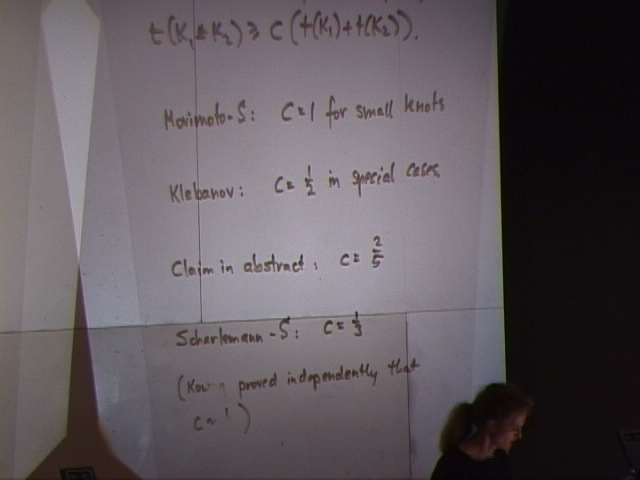 t(K₁#K₂) ≥ C(t(K₁)+t(K₂)).
Morimoto-S: C=1 for small knots
Klebanov: C= 1/2 in special cases.
Claim in abstract: C= 2/5
Scharlemann-S: C= 1/3
proved independently that